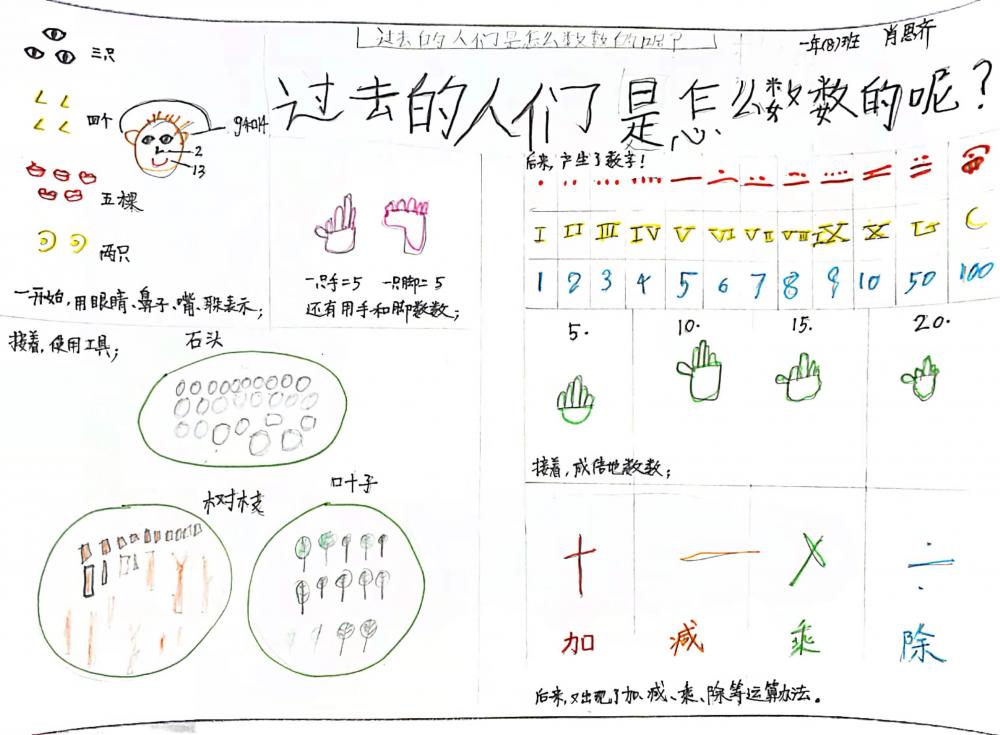 过去的人们是怎么数数的呢?
一年(8)班 肖思齐
过去的人们是怎么数数的呢?
三只
四个
五棵
两只
9和4
2
13
一开始,用眼睛、鼻子、嘴、躲表示;
一只手=5 一只脚=5
还有用手和脚数数;
接着,使用工具;
石头
树枝
叶子
后来,产生了数字!
I II III IV V VI VII VIII IX X L C
1 2 3 4 5 6 7 8 9 10 50 100
5. 10. 15. 20.
接着,成倍地数数;
+ - × ÷
加 减 乘 除
后来,又出现了加、减、乘、除等运算办法。